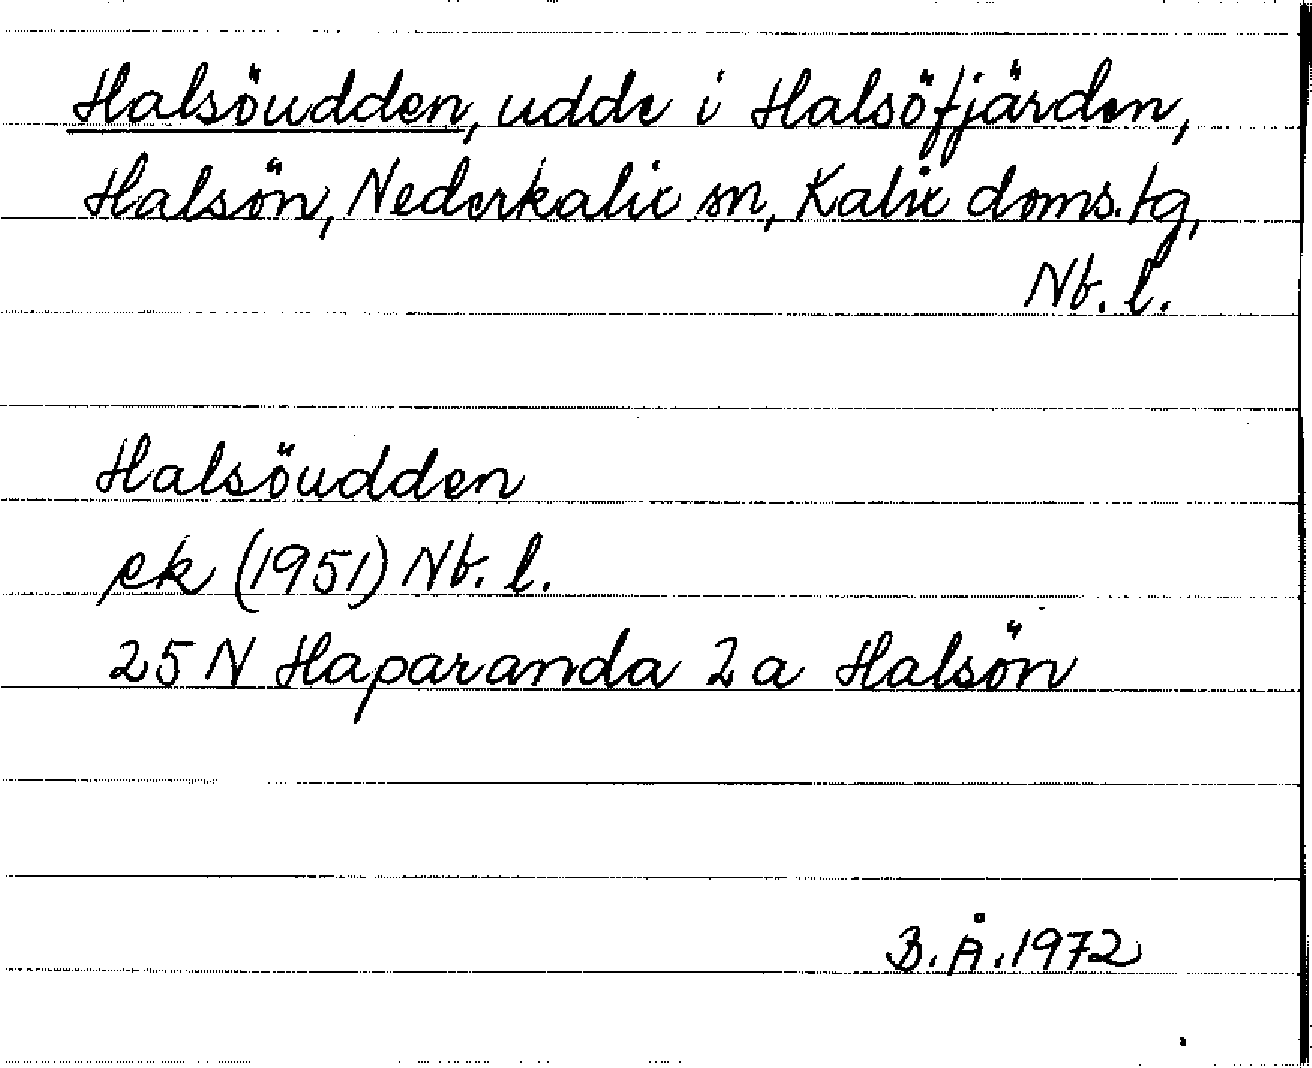 Halsöudden, udde i Halsöfjärden,
Halsön, Nederkalix sn, Kalix doms.tg,
Nb. l.
Halsöudden
ek (1951) Nb. l.
25 N Haparanda 2a Halsön
B.Å.1972